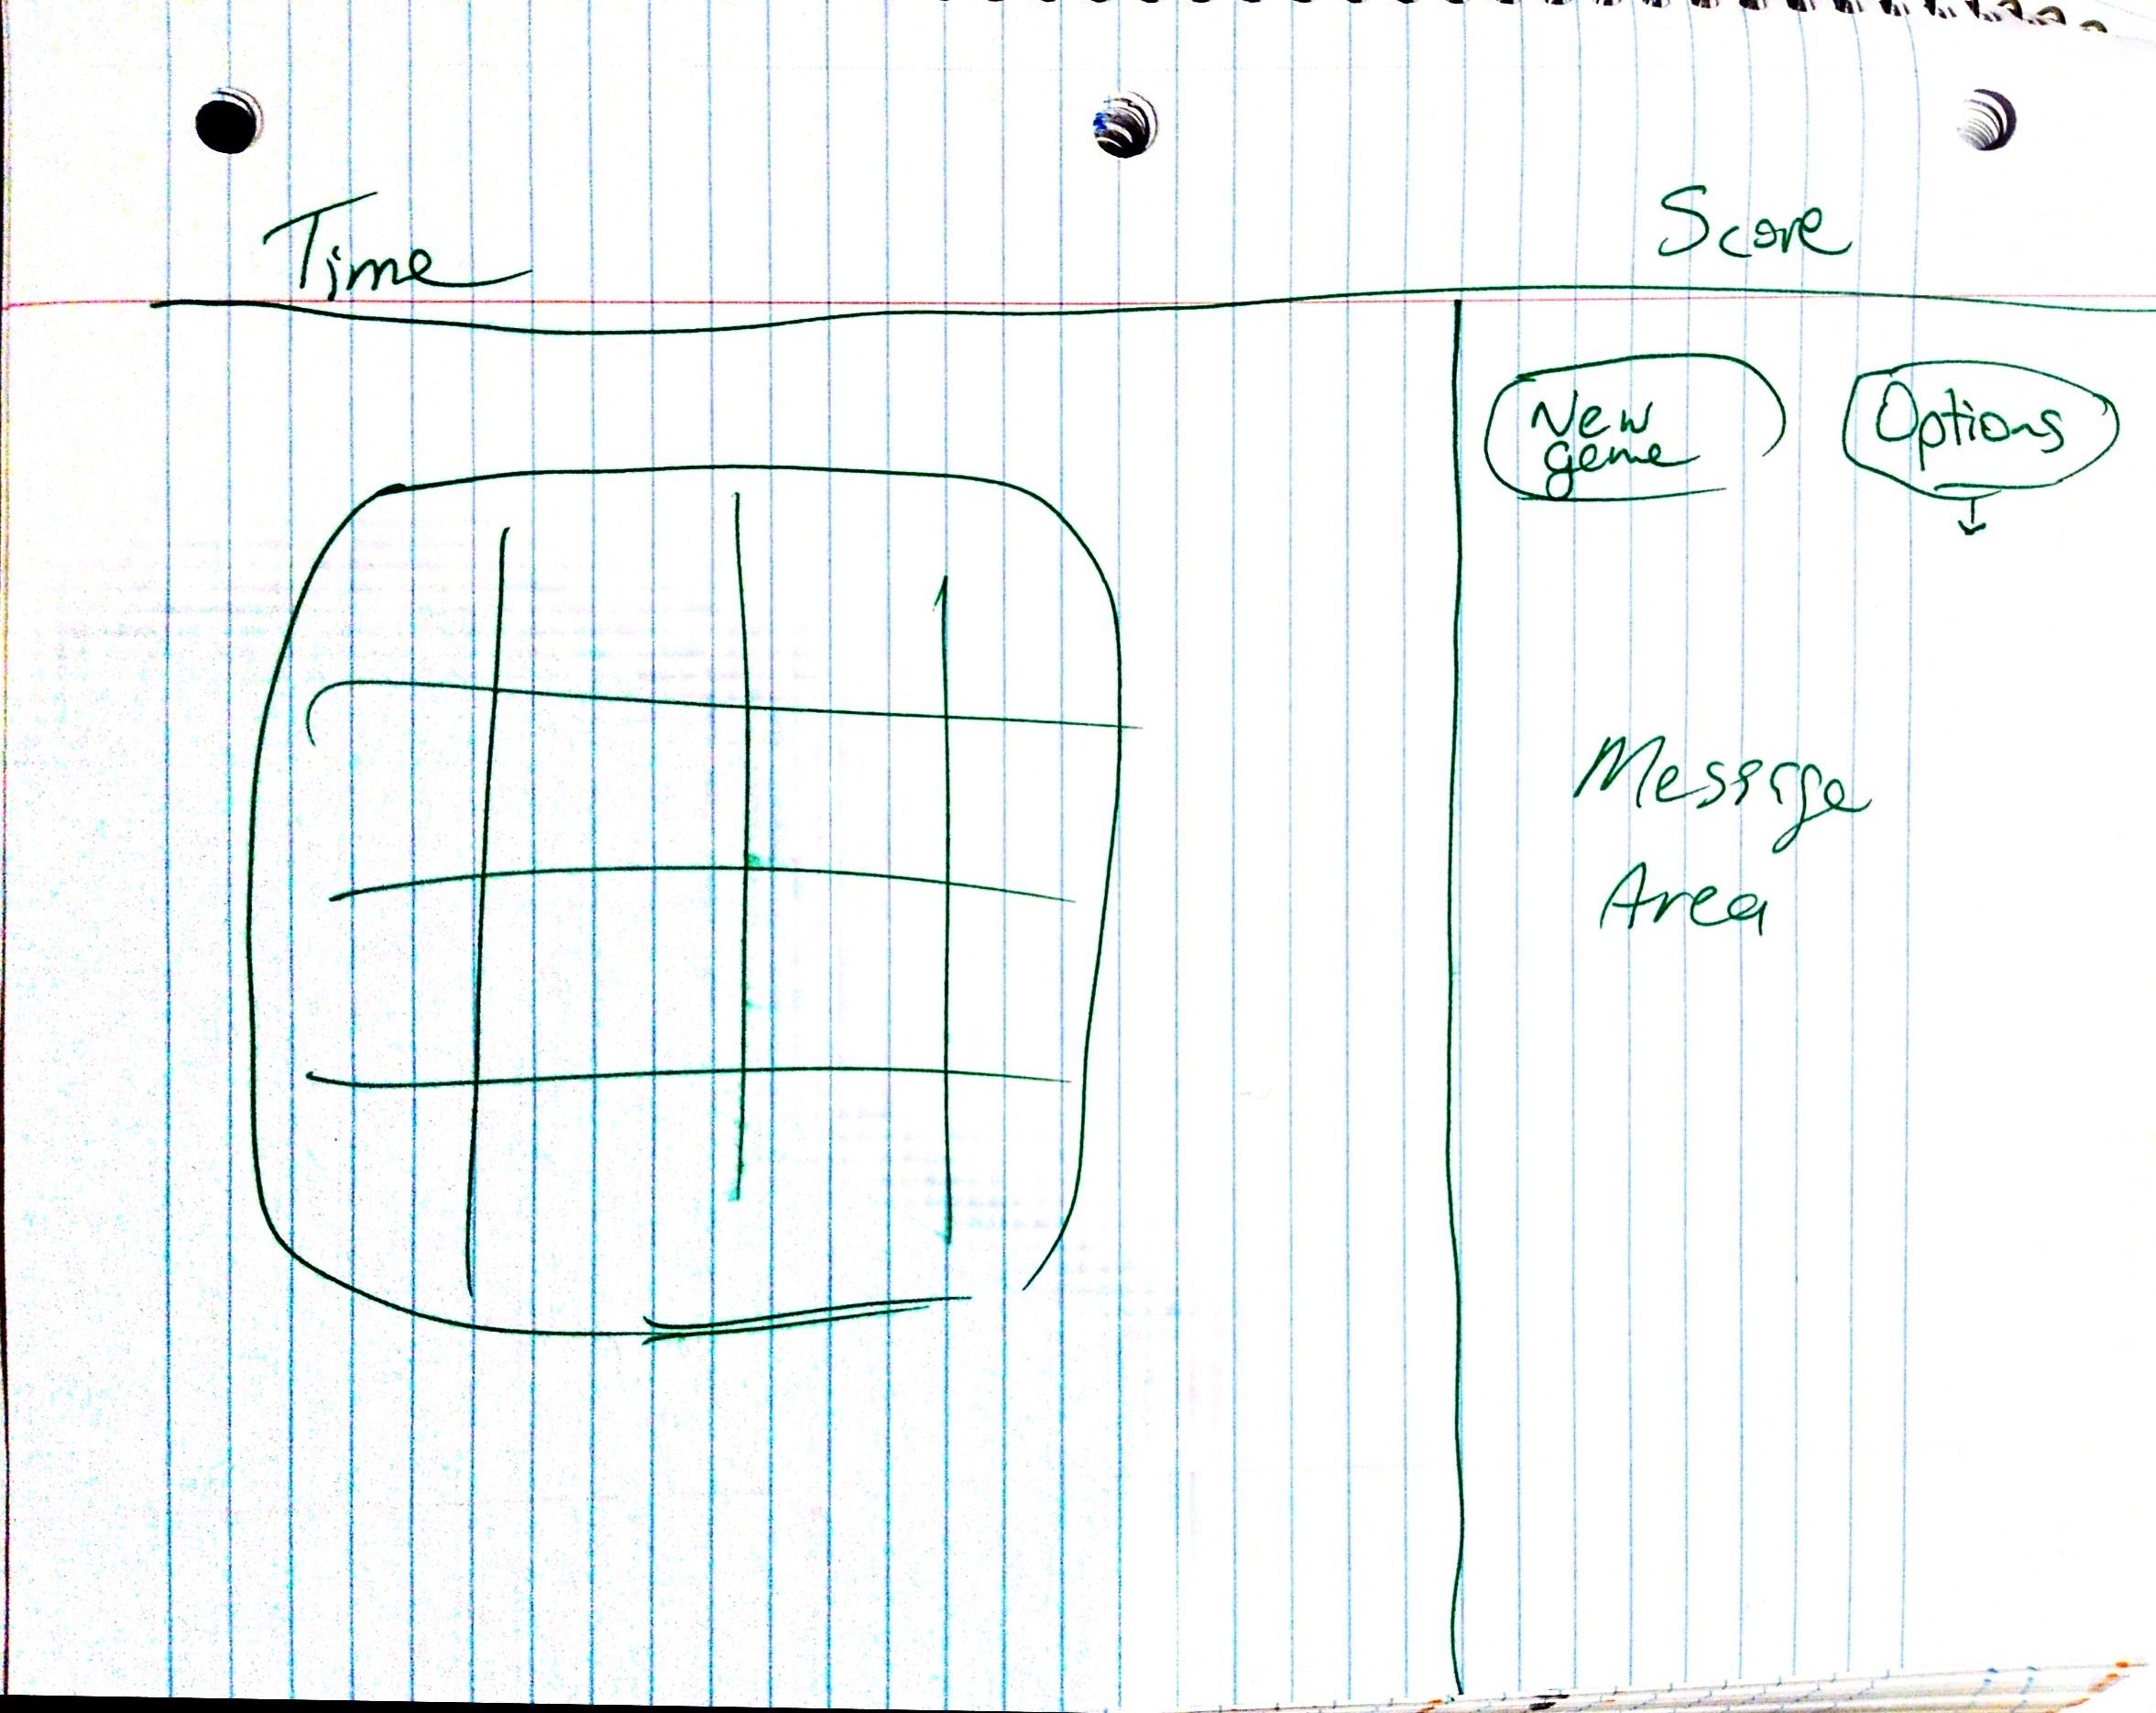 Time
Score
New
game
Options
Message
Area